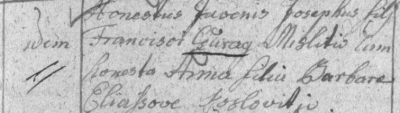 Honestus Juvenis Josephus filj
Idem Francisci Guraÿ Mislitis cum
11 honesta Anna filia Barbare
Eliassove Koslovitj